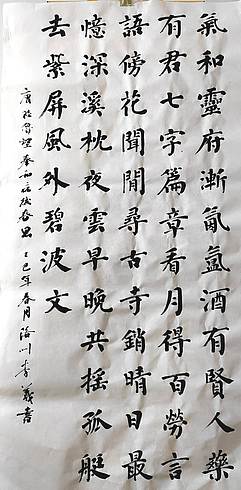 氣和靈府漸氤氳酒有賢人藥
有君七字篇章看月得百勞言
語傍花聞閒尋古寺銷晴日最
憶深溪枕夜雲早晚共搖孤艇
去紫屏風外碧波文
唐陸龜蒙奉和病後春思 乙巳年春月洛川李義書